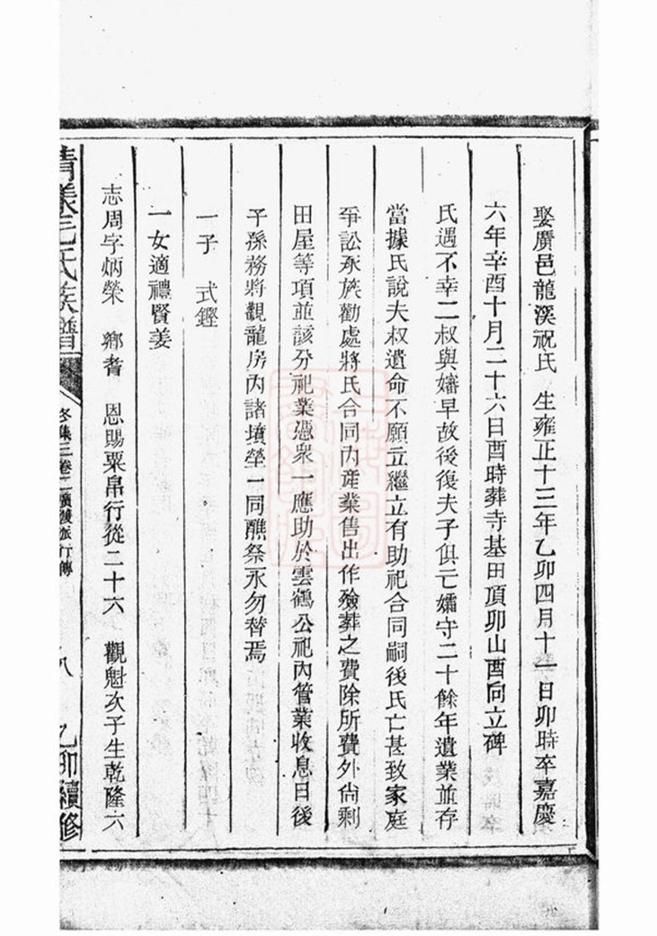 娶廣邑龍溪祝氏 生雍正十三年乙卯四月十一日卯時卒嘉慶
六年辛酉十月二十六日酉時葬寺基田頂卯山酉向立碑
氏遇不幸二叔與嬸早故後復夫子俱亡孀守二十餘年遺業並存
當據氏說夫叔遺命不願立繼立有助祀合同嗣後氏亡甚致家庭
爭訟承族勸處將氏合同內產業售出作殮葬之費除所費外尙剩
田屋等項並該分祀業憑衆一應助於雲鶴公祀內管業收息日後
子孫務將觀龍房內諸墳塋一同醮祭永勿替焉
一子 式鏗
一女適禮賢姜
志周字炳榮 鄉耆 恩賜粟帛行從二十六 觀魁次子生乾隆六
清漾毛氏族譜
冬集三卷二 行傳
八
乙卯續修